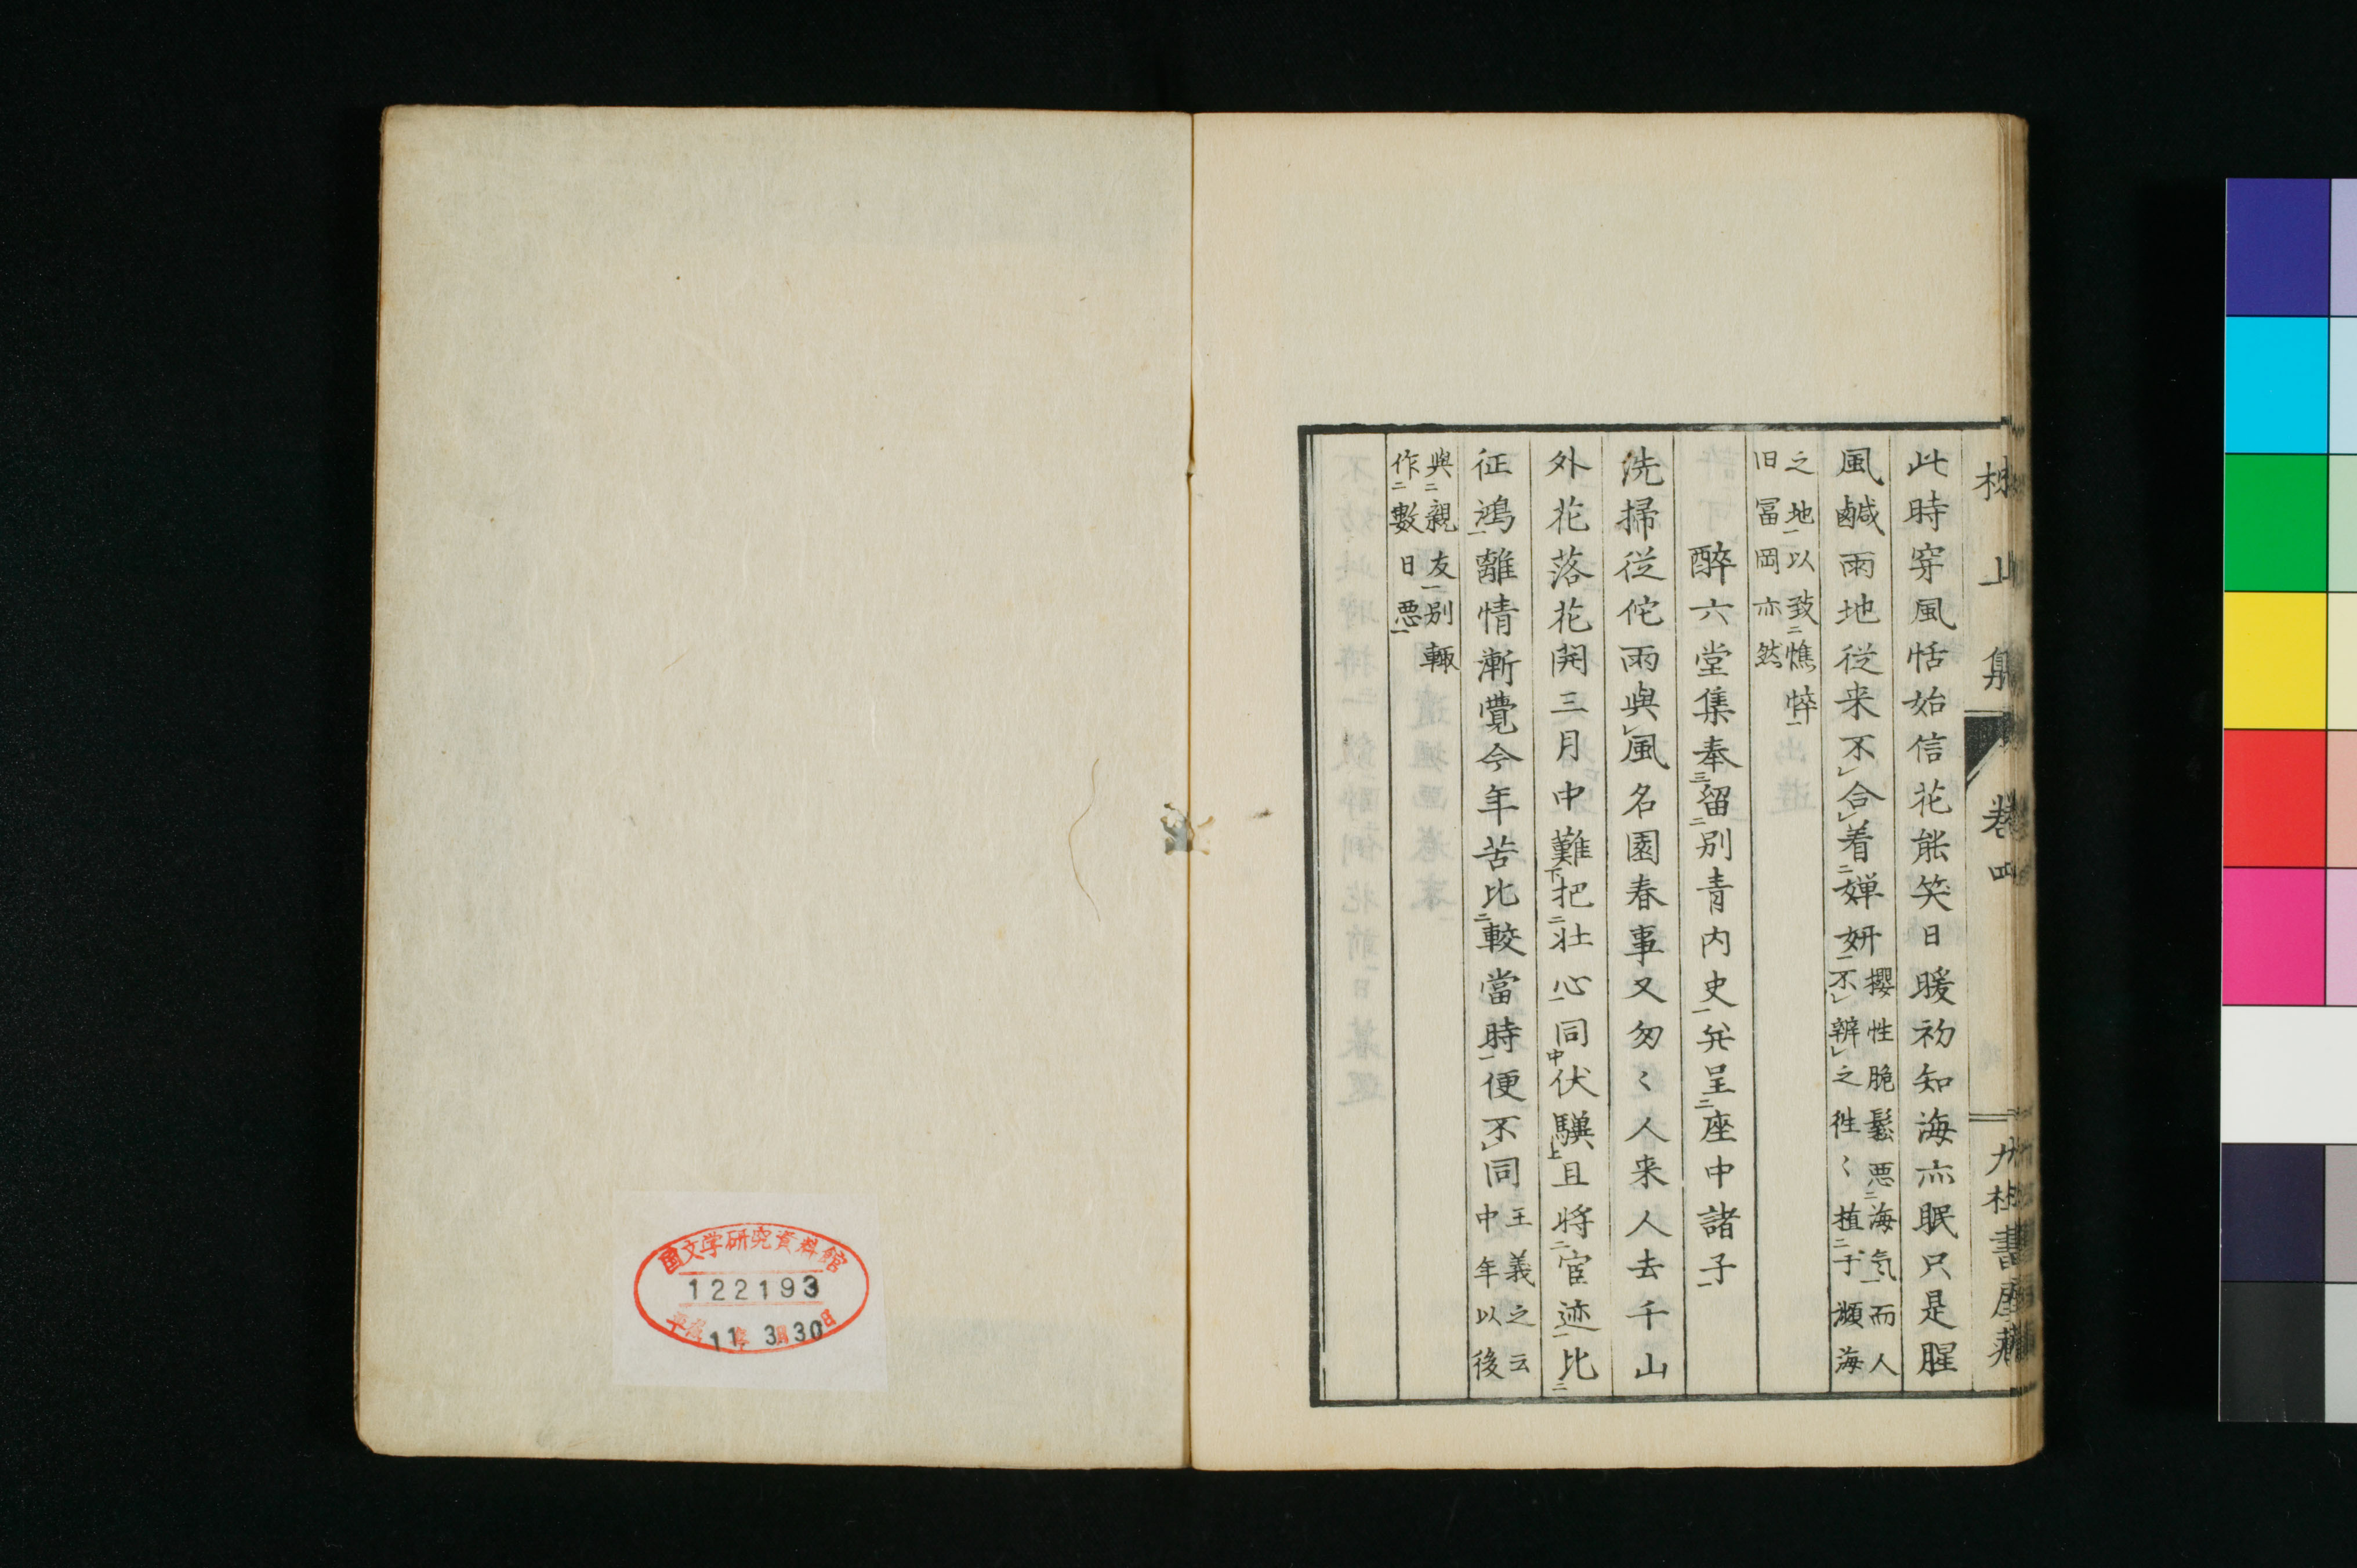 山集
卷四
此時穿風恬始信花能笑日暖初知海亦眠只是腥
風鹹雨地従来不合着嬋妍
櫻性脆鬆悪海気而人
不辨之徃〻植于瀕海
之地以致憔悴
旧冨岡亦然
醉六堂集奉留別青内史并呈座中諸子
洗掃従佗雨與風名園春事又匆〻人来人去千山
外花落花開三月中難把壮心同伏驥且將宦迹比
征鴻離情漸覺今年苦比較當時便不同
王義之云
中年以後
與親友別輙
作數日悪
国文学研究資料館
122193
平成11年3月30日